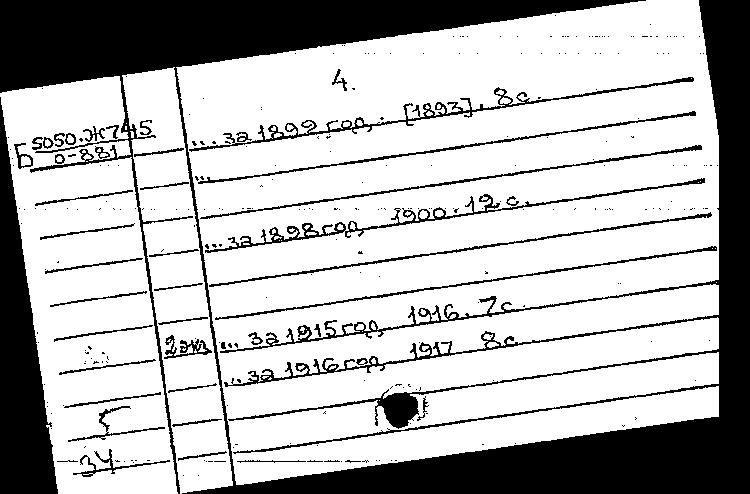 4.
Б 5050.Ж745
0-881
... за 1899 год. [1893]. 8 с.
...
... за 1898 год, 1900. 12 с.
2 эк. ... за 1915 год, 1916. 7 с.
... за 1916 год, 1917 8 с.
34